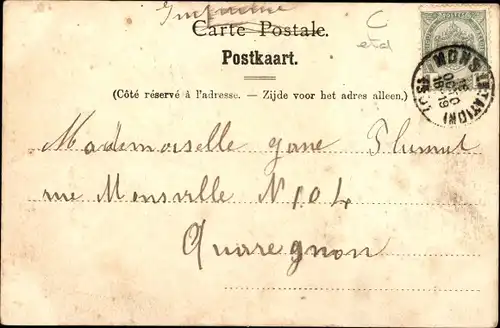 Imprimé
Carte Postale.
Postkaart.
(Côté réservé à l'adresse. — Zijde voor het adres alleen.)
MONS (STATION)
Mademoiselle Jane
rue Monsville N 104
Quaregnon